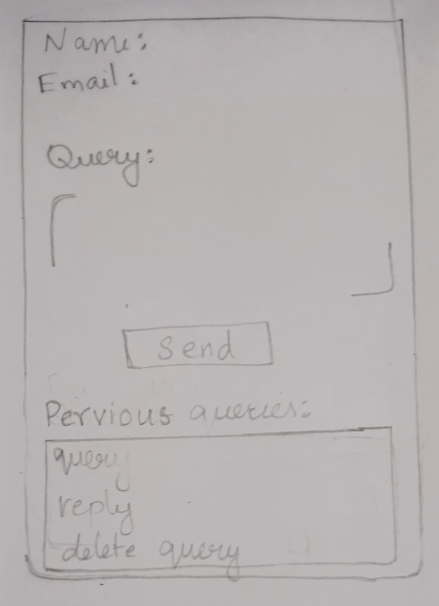 Name:
Email:
Query:
Send
Pervious queries:
query
reply
delete query